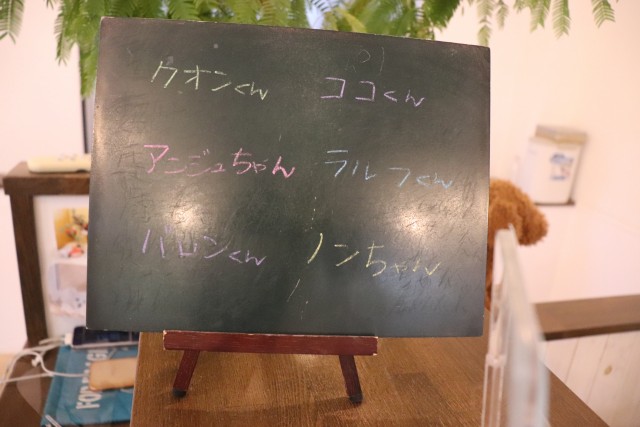 クオンくん ココくん
アンジュちゃん ラルフくん
バロンくん ノンちゃん